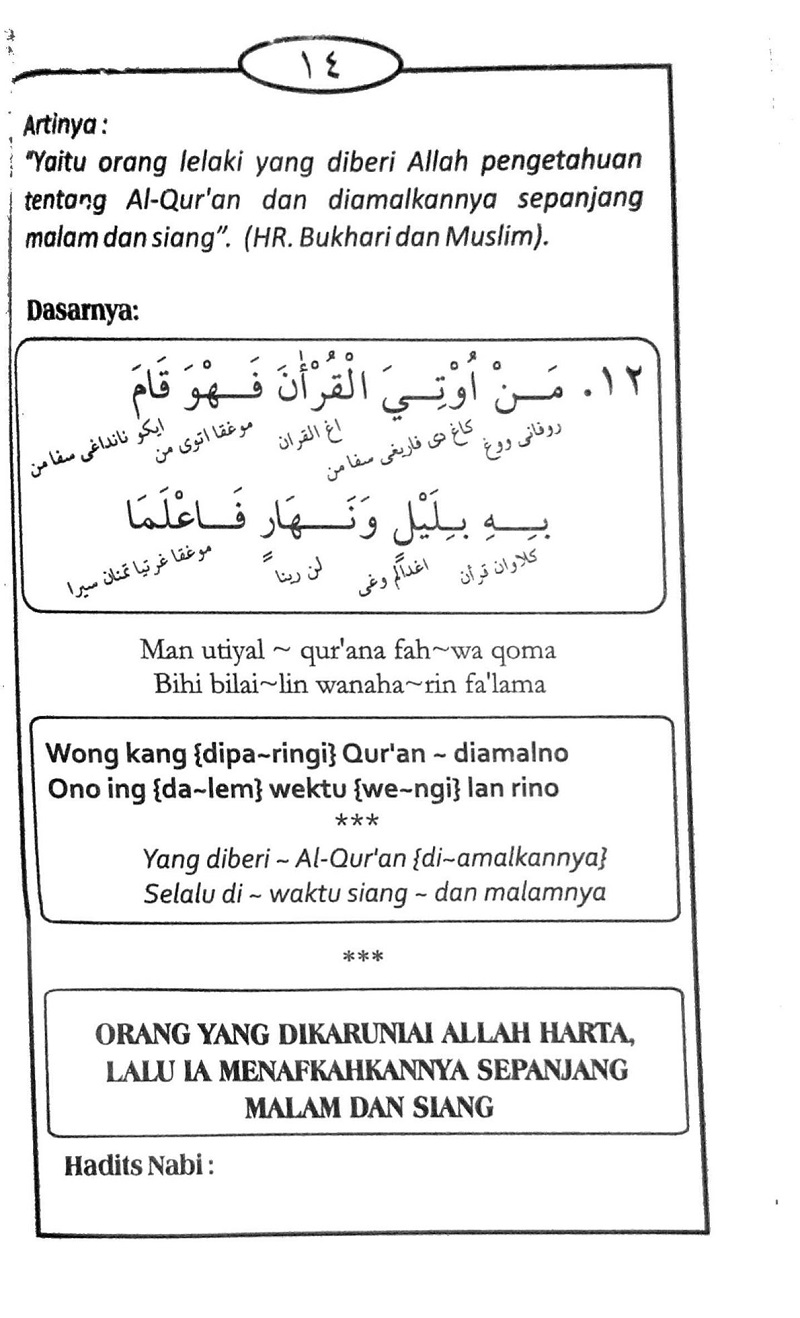 ١٤
Artinya :
"Yaitu orang lelaki yang diberi Allah pengetahuan
tentang Al-Qur'an dan diamalkannya sepanjang
malam dan siang". (HR. Bukhari dan Muslim).
Dasarnya:
١٢. مَنْ أُوْتِيَ الْقُرْأٰنَ فَهْوَ قَامَ
كاغ دى فاريغى سفا من اغ القران موغقا اتوى من ايكو نانداغى سفا من
بِهِ بِلَيْلٍ وَنَهَارٍ فَاعْلَمَا
كلاوان قرأن اغدالم وغى لن رينا موغقا غرتيا تمنان سيرا
Man utiyal ~ qur'ana fah~wa qoma
Bihi bilai~lin wanaha~rin fa'lama
Wong kang {dipa~ringi} Qur'an ~ diamalno
Ono ing {da~lem} wektu {we~ngi} lan rino
***
Yang diberi ~ Al-Qur'an {di~amalkannya}
Selalu di ~ waktu siang ~ dan malamnya
***
ORANG YANG DIKARUNIAI ALLAH HARTA,
LALU IA MENAFKAHKANNYA SEPANJANG
MALAM DAN SIANG
Hadits Nabi :